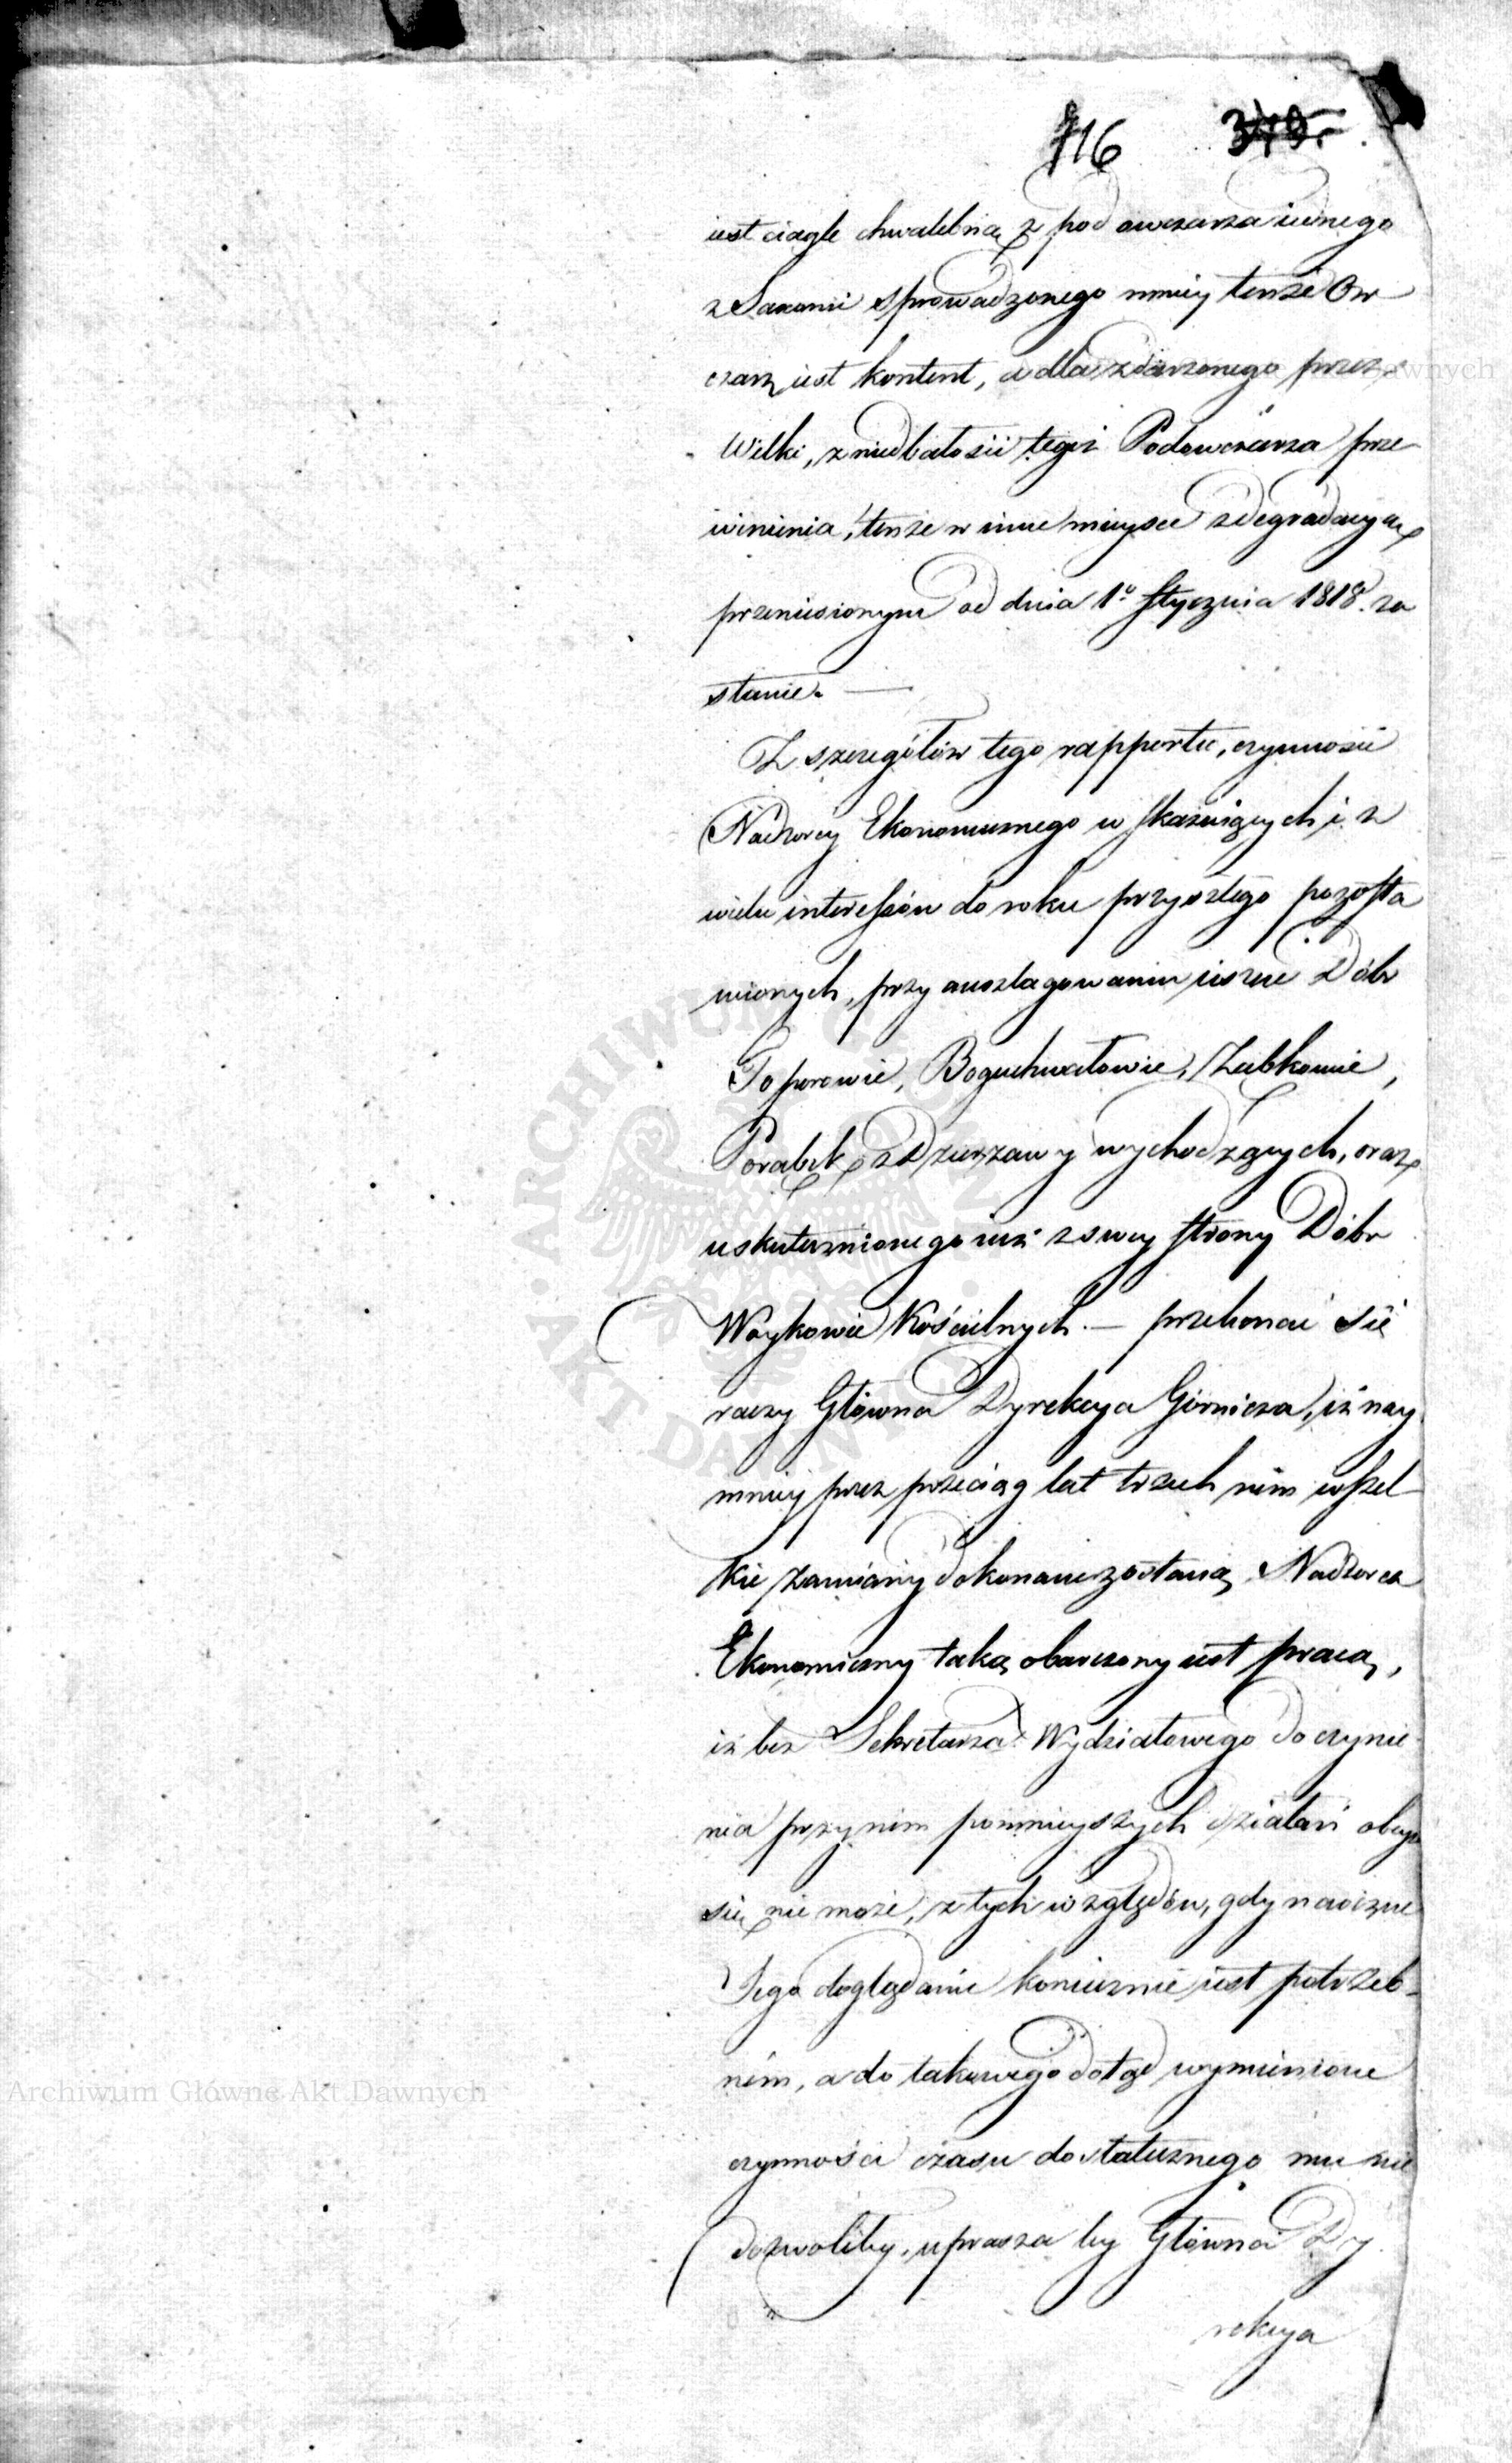 716 379.
iest ciągle chwalebną z pod owczarza iednego
z Saxonii sprowadzonego mniey tenże Ow
czarz iest kontent, a dla zdarzonego przez
Wilki, z niedbałości tegoż Podowczarza prze
winienia, tenże w inne mieysce z degradacyą
przeniesionym od dnia 1º Stycznia 1818. zo
stanie. —
Z szczegółów tego rapportu, czynności
Nadzorcy Ekonomicznego wskazuiących i z
wielu interessów do roku przyszłego pozosta
wionych, przy auszlagowaniu ieszcze Dóbr
Toporowic, Boguchwałowic, Ząbkowic,
Porąbki z Dzierżawy wychodzących, oraz
uskutecznionego iuż z swey strony Dóbr
Woykowic Kościelnych. — przekonać się
raczy Główna Dyrekcya Górnicza, iż nay
mniey przez przeciąg lat trzech nim wszel
kie zamiany dokonane zostaną, Nadzorca
Ekonomiczny taką obarczony iest pracą,
iż bez Sekretarza Wydziałowego do czynie
nia przy nim pomnieyszych działań obeyść
się nie może, z tych względów, gdy naoczne
Jego doglądanie koniecznie iest potrzeb-
ném, a do takowego dotąd wymienione
czynności czasu dostatecznego mu nie
dozwoliły, uprasza by Główna Dy
rekcya
Archiwum Główne Akt Dawnych